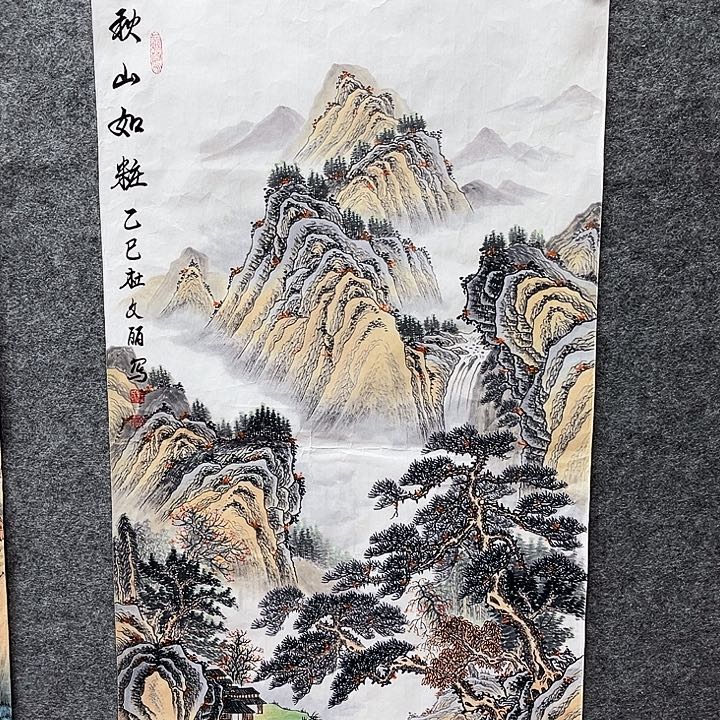 秋山如粧
乙巳杜文丽写